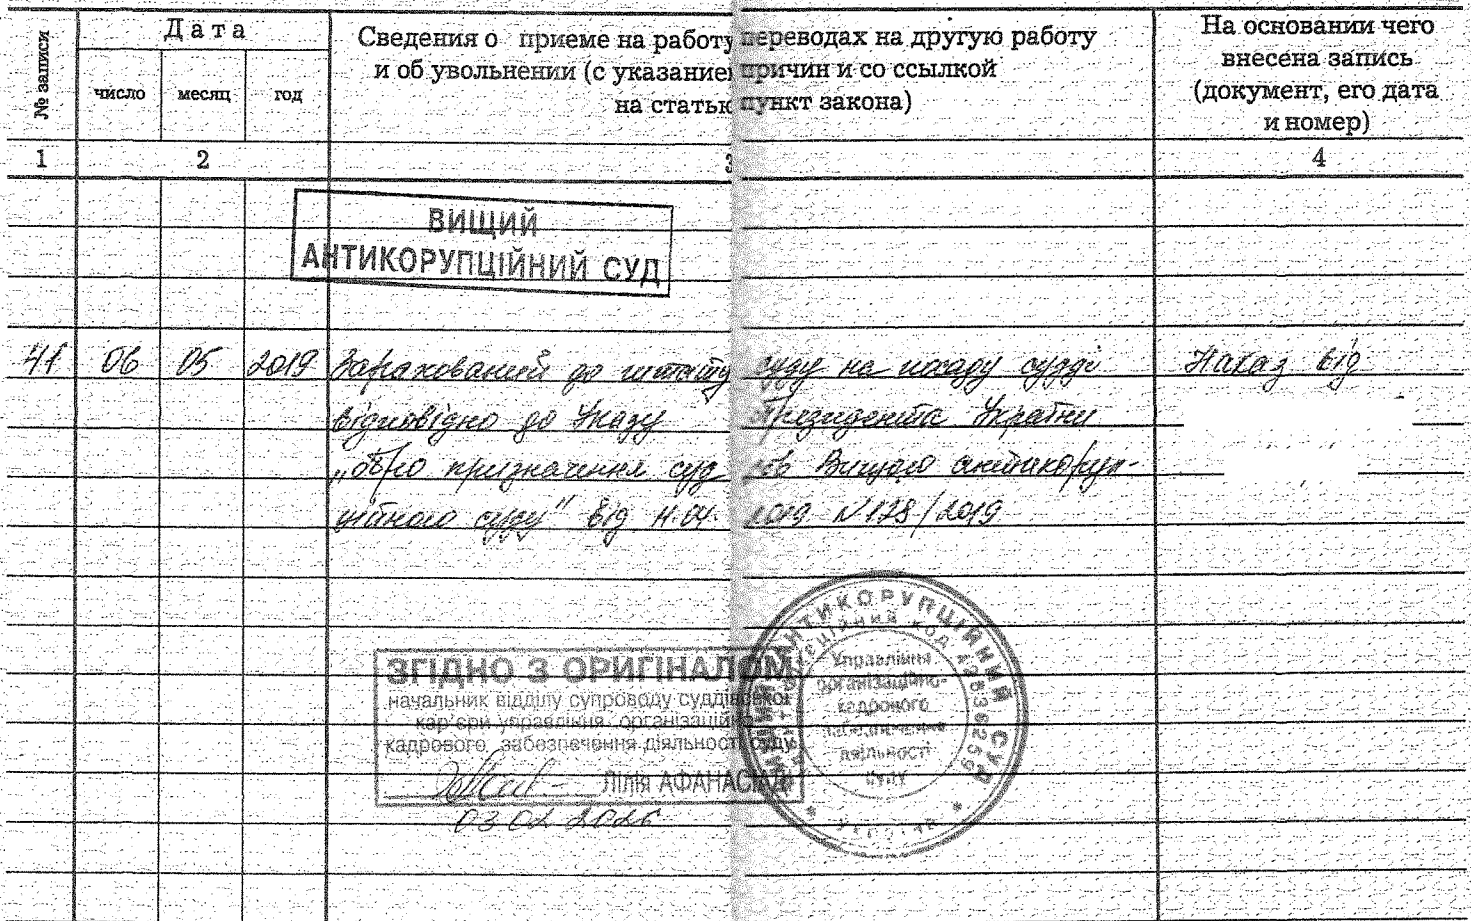 № записи
Дата
число месяц год
Сведения о приеме на работу переводах на другую работу
и об увольнении (с указание причин и со ссылкой
на стать пункт закона)
На основании чего
внесена запись
(документ, его дата
и номер)
1 2 3 4
ВИЩИЙ
АНТИКОРУПЦІЙНИЙ СУД
41 06 05 2019 Зарахований до штату суду на посаду судді Наказ від
відповідно до Указу Президента України
призначення суд ів Вищого антикоруп-
ційного суду" від 11.04. 2019 №128/2019
ЗГІДНО З ОРИГІНАЛОМ
начальник відділу супроводу суддівської
кар'єри управління організаційно
кадрового забезпечення діяльності суду
Лілія АФАНАСІАДІ
03 02 2026
ВИЩИЙ АНТИКОРУПЦІЙНИЙ СУД
Ідентифікаційний код 42836259
Управління
організаційно-
кадрового
забезпечення
діяльності
суду
* Україна *